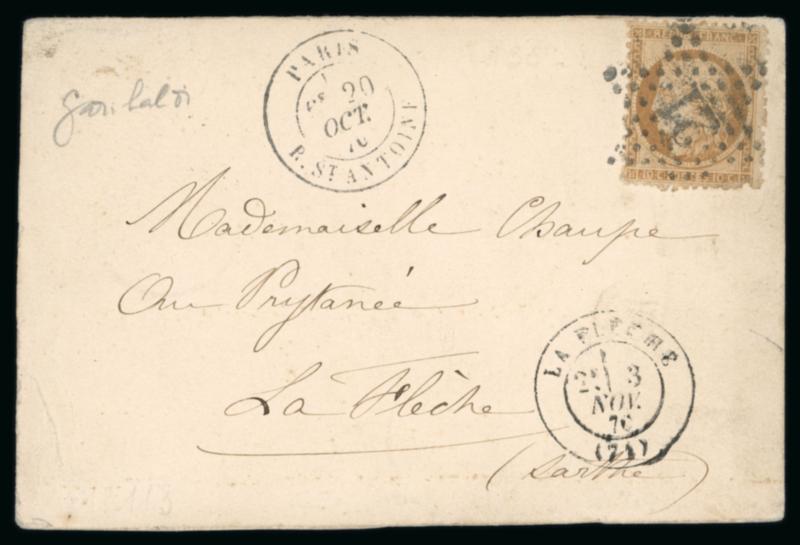 PARIS
20
OCT.
70
R. ST ANTOINE
REPUB FRANC
10 C 10 C
Garibaldi
Mademoiselle Chaupe
Au Prytanée
La Flèche
(Sarthe)
LA FLECHE
3
NOV.
70
(71)